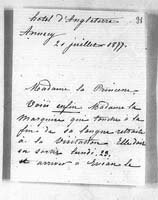 hôtel d'Angleterre
Annecy
21 juillet 1877.
Madame la Princesse
Voici enfin Madame la
Marquise qui touche à la
fin de sa longue retraite
à la Visitation. Elle doit
sa sortie lundi, 23,
et arriver à Evian le